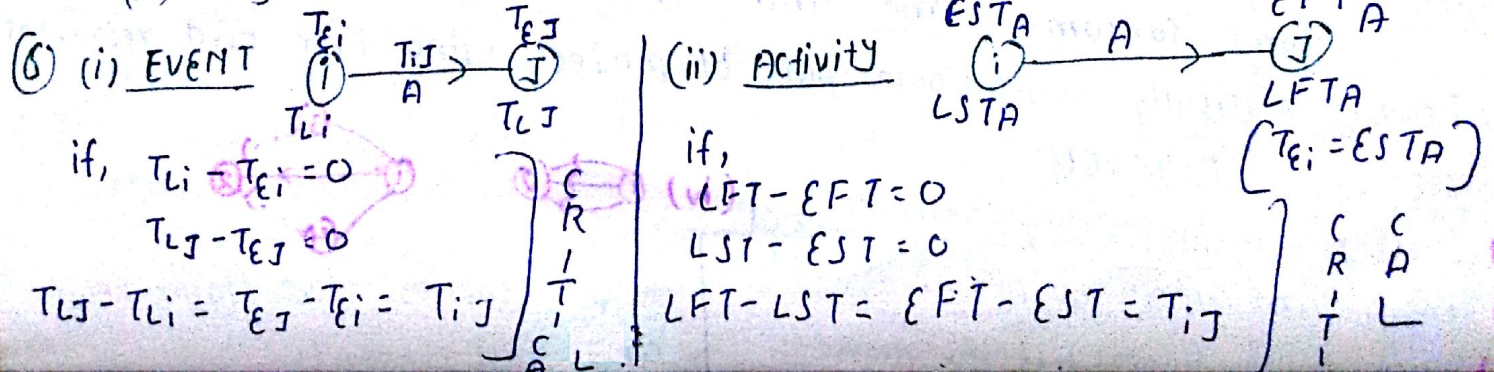 ⑥ (i) EVENT
TEi TEJ
i TiJ J
A
TLi TLJ
if, TLi - TEi = 0
TLJ - TEJ = 0
TLJ - TLi = TEJ - TEi = TiJ
CRITICAL
(ii) Activity
ESTA A
i A J
LSTA LFTA
if, (TEi = ESTA)
LFT - EFT = 0
LST - EST = 0
LFT - LST = EFT - EST = TiJ
CRITICAL